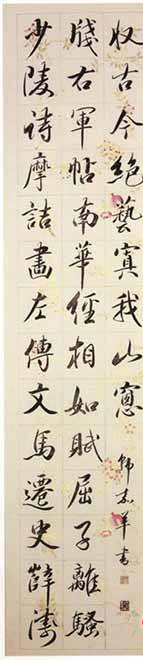 少陵詩摩詰畵左傳文馬遷史薛濤
牋右軍帖南華經相如賦屈子離騷
収古今絕藝寘我山窻
書